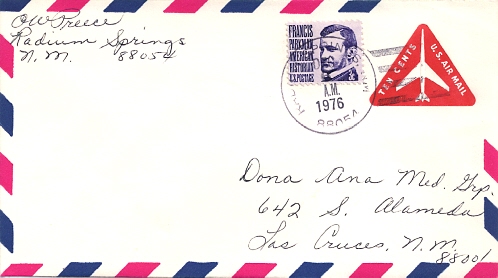 OW Preece
Radium Springs
N. M. 88054
FRANCIS
PARKMAN
AMERICAN
HISTORIAN
U.S. POSTAGE
3¢
A.M.
1976
88054
TEN CENTS
U.S. AIR MAIL
Dona Ana Med. Grp.
642 S. Alameda
Las Cruces, N. M.
88001